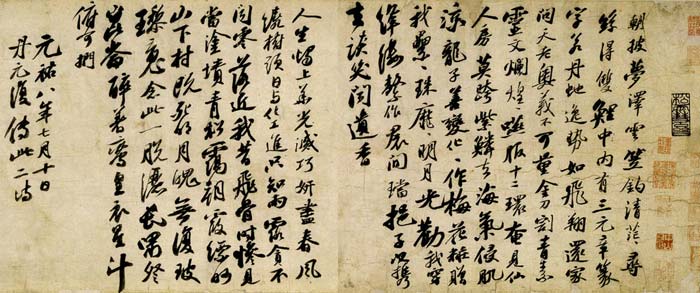 朝披夢澤雲笠釣清茫〻尋
絲得雙鯉中內有三元章篆
字若丹虵逸勢如飛翔還家
問天老奧義不可量金刀割青素
靈文爛煌〻嚥服十二環奄見仙
人房莫跨紫鱗去海氣侵肌
涼龍子善變化〻作梅花粧贈
我纍〻珠靡〻明月光勸我穿
絳縷繫作裙間璫挹子以攜
去談笑聞遺香
人生燭上華光滅巧妍盡春風
繞樹頭日與化工進只知雨露貪不
聞零落近我昔飛骨時慘見
當塗墳青松靄朝霞縹緲
山下村既死明月魄無復玻
璃魂念此一脫灑長嘯登
崑崙醉著鸞皇衣星斗
俯可捫
元祐八年七月十日
丹元復傳此二詩